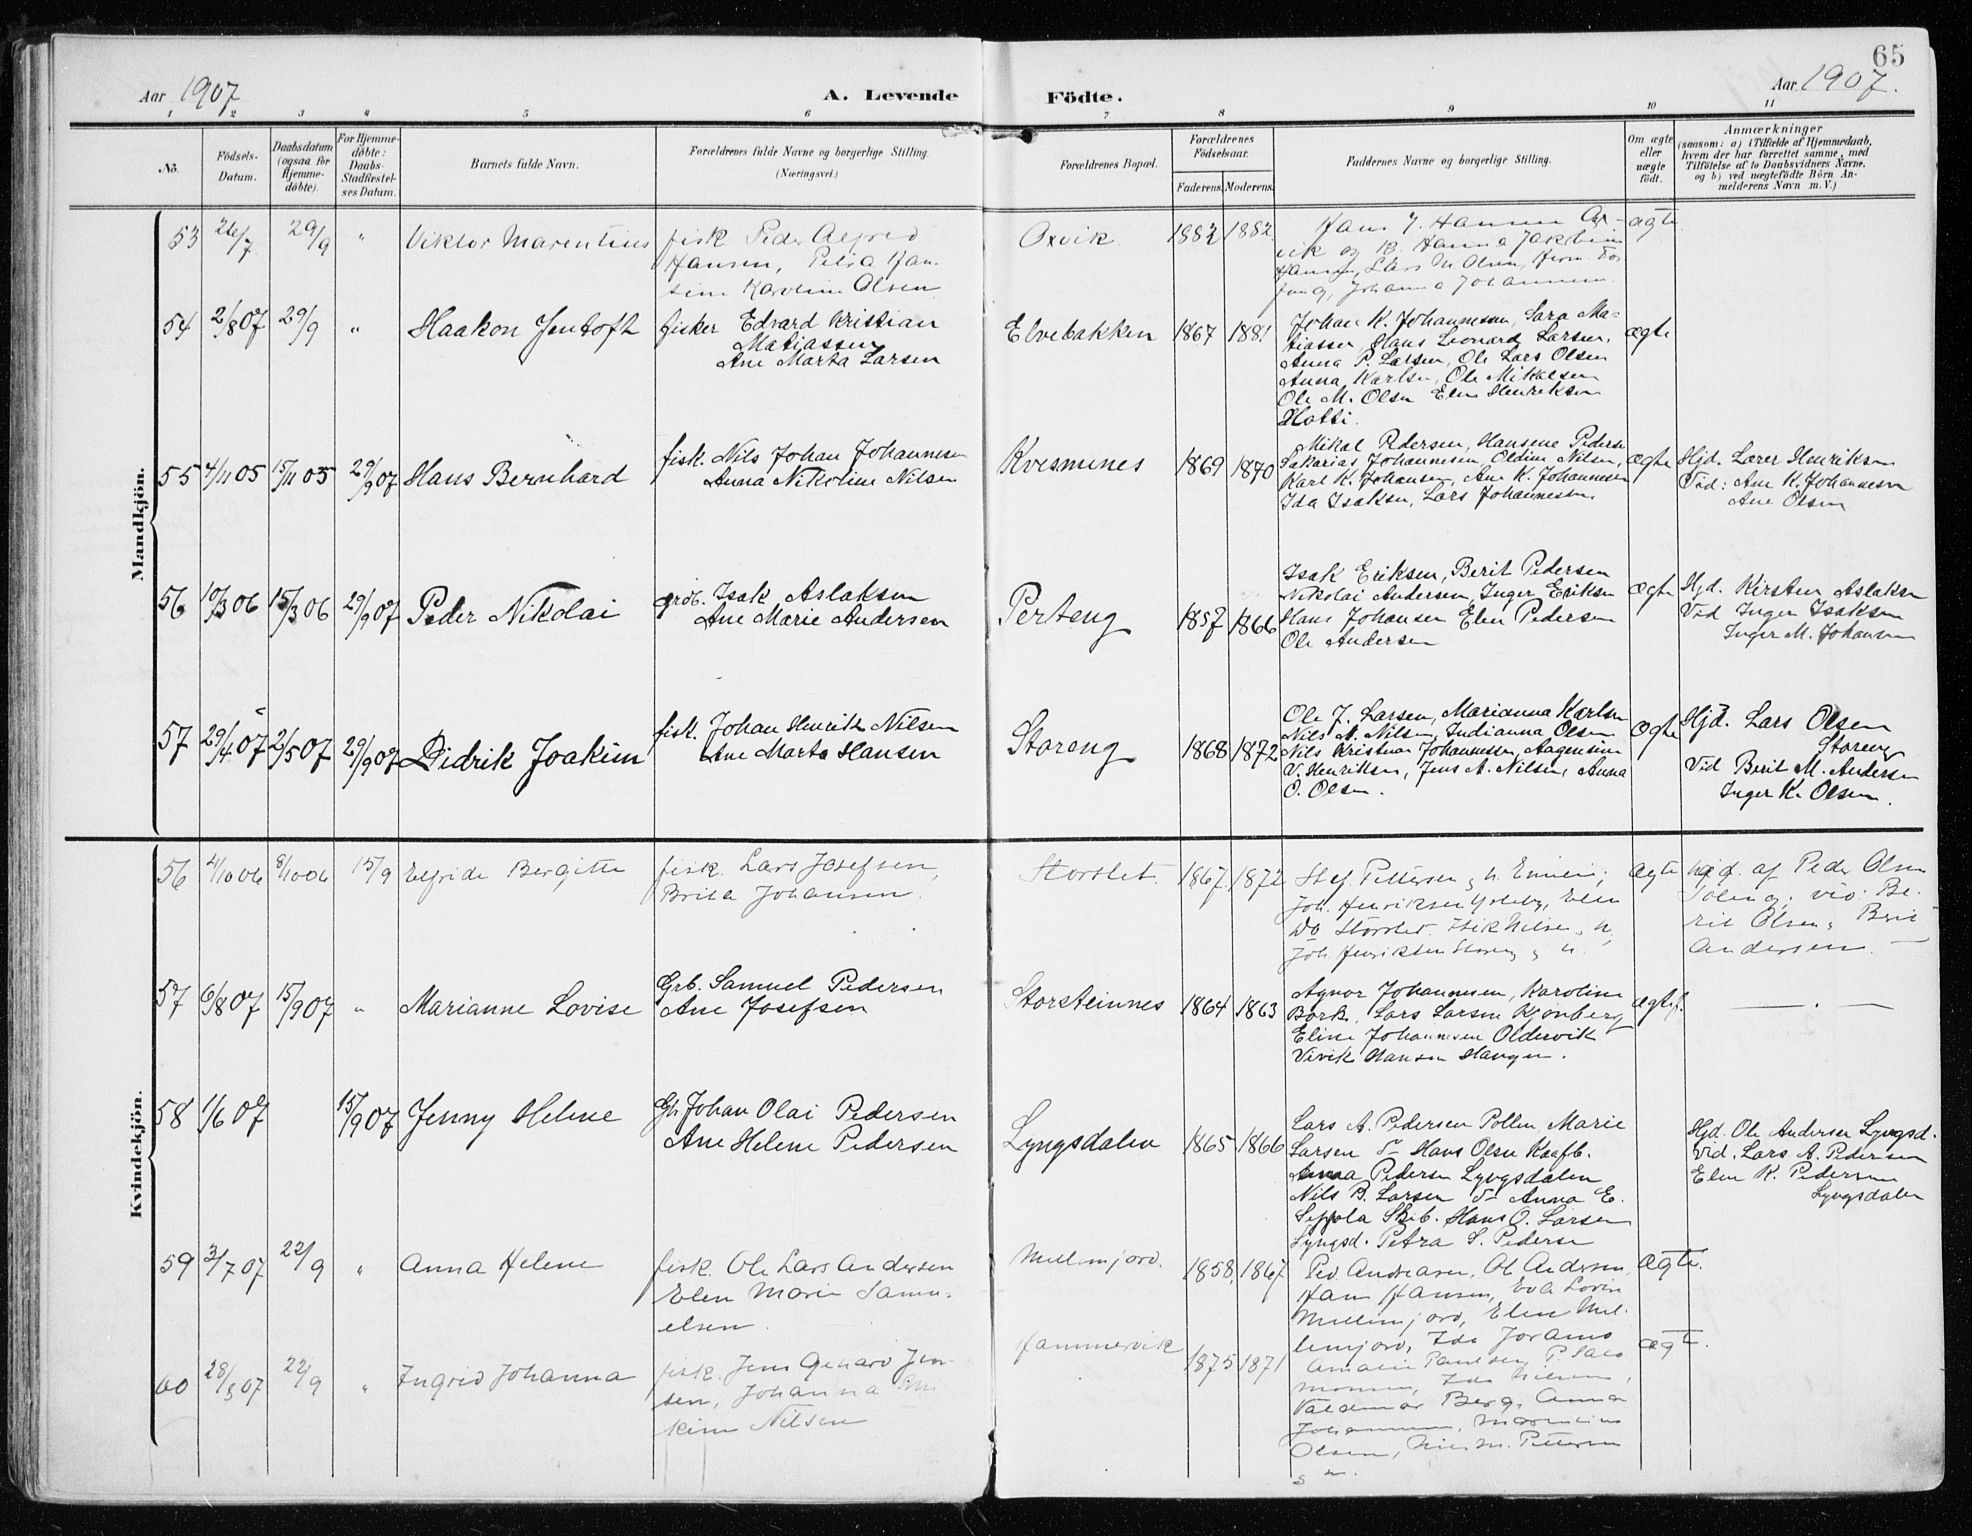 65
Aar 1907
A. Levende Födte.
Aar 1907.
1 2 3 4 5 6 7 8 9 10 11
No.
Födsels-
Datum.
Daabsdatum
(ogsaa for
Hjemme-
döbte).
For Hjemme-
döbte:
Daabs-
Stadfæstel-
ses Datum.
Barnets fulde Navn.
Forældrenes fulde Navne og borgerlige Stilling.
(Næringsvei.)
Forældrenes Bopæl.
Forældrenes
Födselsaar.
Faderens. Moderens.
Faddernes Navne og borgerlige Stilling.
Om ægte
eller
uægte
födt.
Anmærkninger
(saasom: a) i Tilfælde af Hjemmedaab,
hvem der har forrettet samme, med
Tilföielse af to Daabsvidners Navne,
og b) ved uægtefödte Börn An-
melderens Navn m. V.)
Mandkjön.
53 26/7 29/9 " Viktor Marentius
fisk Peder Alfred
Hansen, Petra Han-
sine Karoline Olsen
Oxvik 1882 1882
Hans J. Hansen
vik og K. Hanna
Hansen, Lars M. Olsen,
Johanna Johannesen
ægte
54 2/8 07 29/9 " Haakon Jentoft
fisker Edvard Kristian
Matiassen
Ane Marta Larsen
Elvebakken 1867 1881
Johan K. Johannesen, Sara Ma-
tiassen, Hans Leonard Larsen,
Anna P. Larsen, Ole Lars Olsen
Anna Karlsen, Ole Mikalsen
Ole M. Olsen Elen Henriksen
Hotti.
ægte
55 4/11 05 15/11 05 29/9 07 Hans Bernhard
fisk. Nils Johan Johannesen
Anna Nikoline Nilsen
Kvesmenes 1869 1870
Mikal Pedersen, Hansene Pedersen
Sakarias Johannesen Oldine Nilsen,
Karl K. Johansen, Ane K. Johannesen
Ida Isaksen, Lars Johannesen.
ægte
Hjd. Lærer Henriksen
Vid: Ane K. Johannesen
Ane Olsen
56 10/3 06 15/3 06 29/9 07 Peder Nikolai
grdb. Isak Aslaksen
Ane Marie Andersen
Perteng 1857 1866
Isak Eriksen, Berit Pedersen
Nikolai Andersen, Inger Eriksen
Hans Johansen Elen Pedersen
Ole Andersen
ægte
Hjd. Kirsten Aslaksen
Vid Inger Isaksen
Inger M. Johansen
57 29/4 07 2/5 07 29/9 07 Didrik Joakim
fisk. Johan Henrik Nilsen
Ane Marta Hansen
Storeng 1868 1872
Ole J. Larsen, Marianna Karlsen
Nils A. Nilsen, Indianna Olsen
Nils Kristian Johannessen, Aagensine
V. Henriksen, Jens A. Nilsen, Anna
O. Olsen.
ægte
Hjd. Lars Olsen
Storeng
Vid Berit M. Andersen
Inger K. Olsen.
Kvindekjön.
56 4/10 06 8/10 06 15/9 Elfride Bergitte
fisk. Lars Josefsen,
Brita Johansen.
Storslet. 1867. 1872
Stef. Pettersen
Joh. Henriksen Elen
Do Storslet. Nilsen
Joh. Henriksen Storeng
ægte
hjd. af Peder Olsen
vid. Be-
rit Olsen, Berit
Andersen.
57 6/8 07 15/9 07 " Marianne Lovise
Grb. Samuel Pedersen
Ane Josefsen
Storsteinnes 1864 1863
Agnor Johannesen, Karoline
Bork, Lars Larsen Kjønberg
Eline Johannesen Oldervik
Vivik Hansen Hangen.
ægte f.
58 1/6 07 15/9 07 Jenny Helene
Gb Johan Olai Pedersen
Ane Helene Pedersen
Lyngsdalen 1865 1866
Lars A. Pedersen Pollen Marie
Larsen Hans Olsen Kaafb.
Anna Pedersen Lyngsdalen
Nils B. Larsen Anna E.
Seppola Skib. Hans O. Larsen
Lyngsd. Petra S. Pedersen
Hjd. Ole Andersen Lyngsd.
Vid. Lars A. Pedersen
Elen K. Pedersen
Lyngsdalen
59 3/7 07 22/9 " Anna Helene
fisk. Ole Lars Andersen
Elen Marie Samu-
elsen.
Mellemjord. 1858. 1867
Ped. Andreasen, Ol Andersen,
Hans Hansen, Eva Lovise
Mellemjord, Elen Mel-
lemjord, Ida Jorams
ægte.
60 28/5 07 22/9 " Ingrid Johanna
fisk. Jens Gerhard Jen-
sen, Johanna
Nilsen
Hammervik 1875 1871
Amalie Paulsen, P. Salo
monsen, Ida Nilsen,
Valdemar Berg, Anna
Johannesen,
Olsen, Pettersen
ægte.